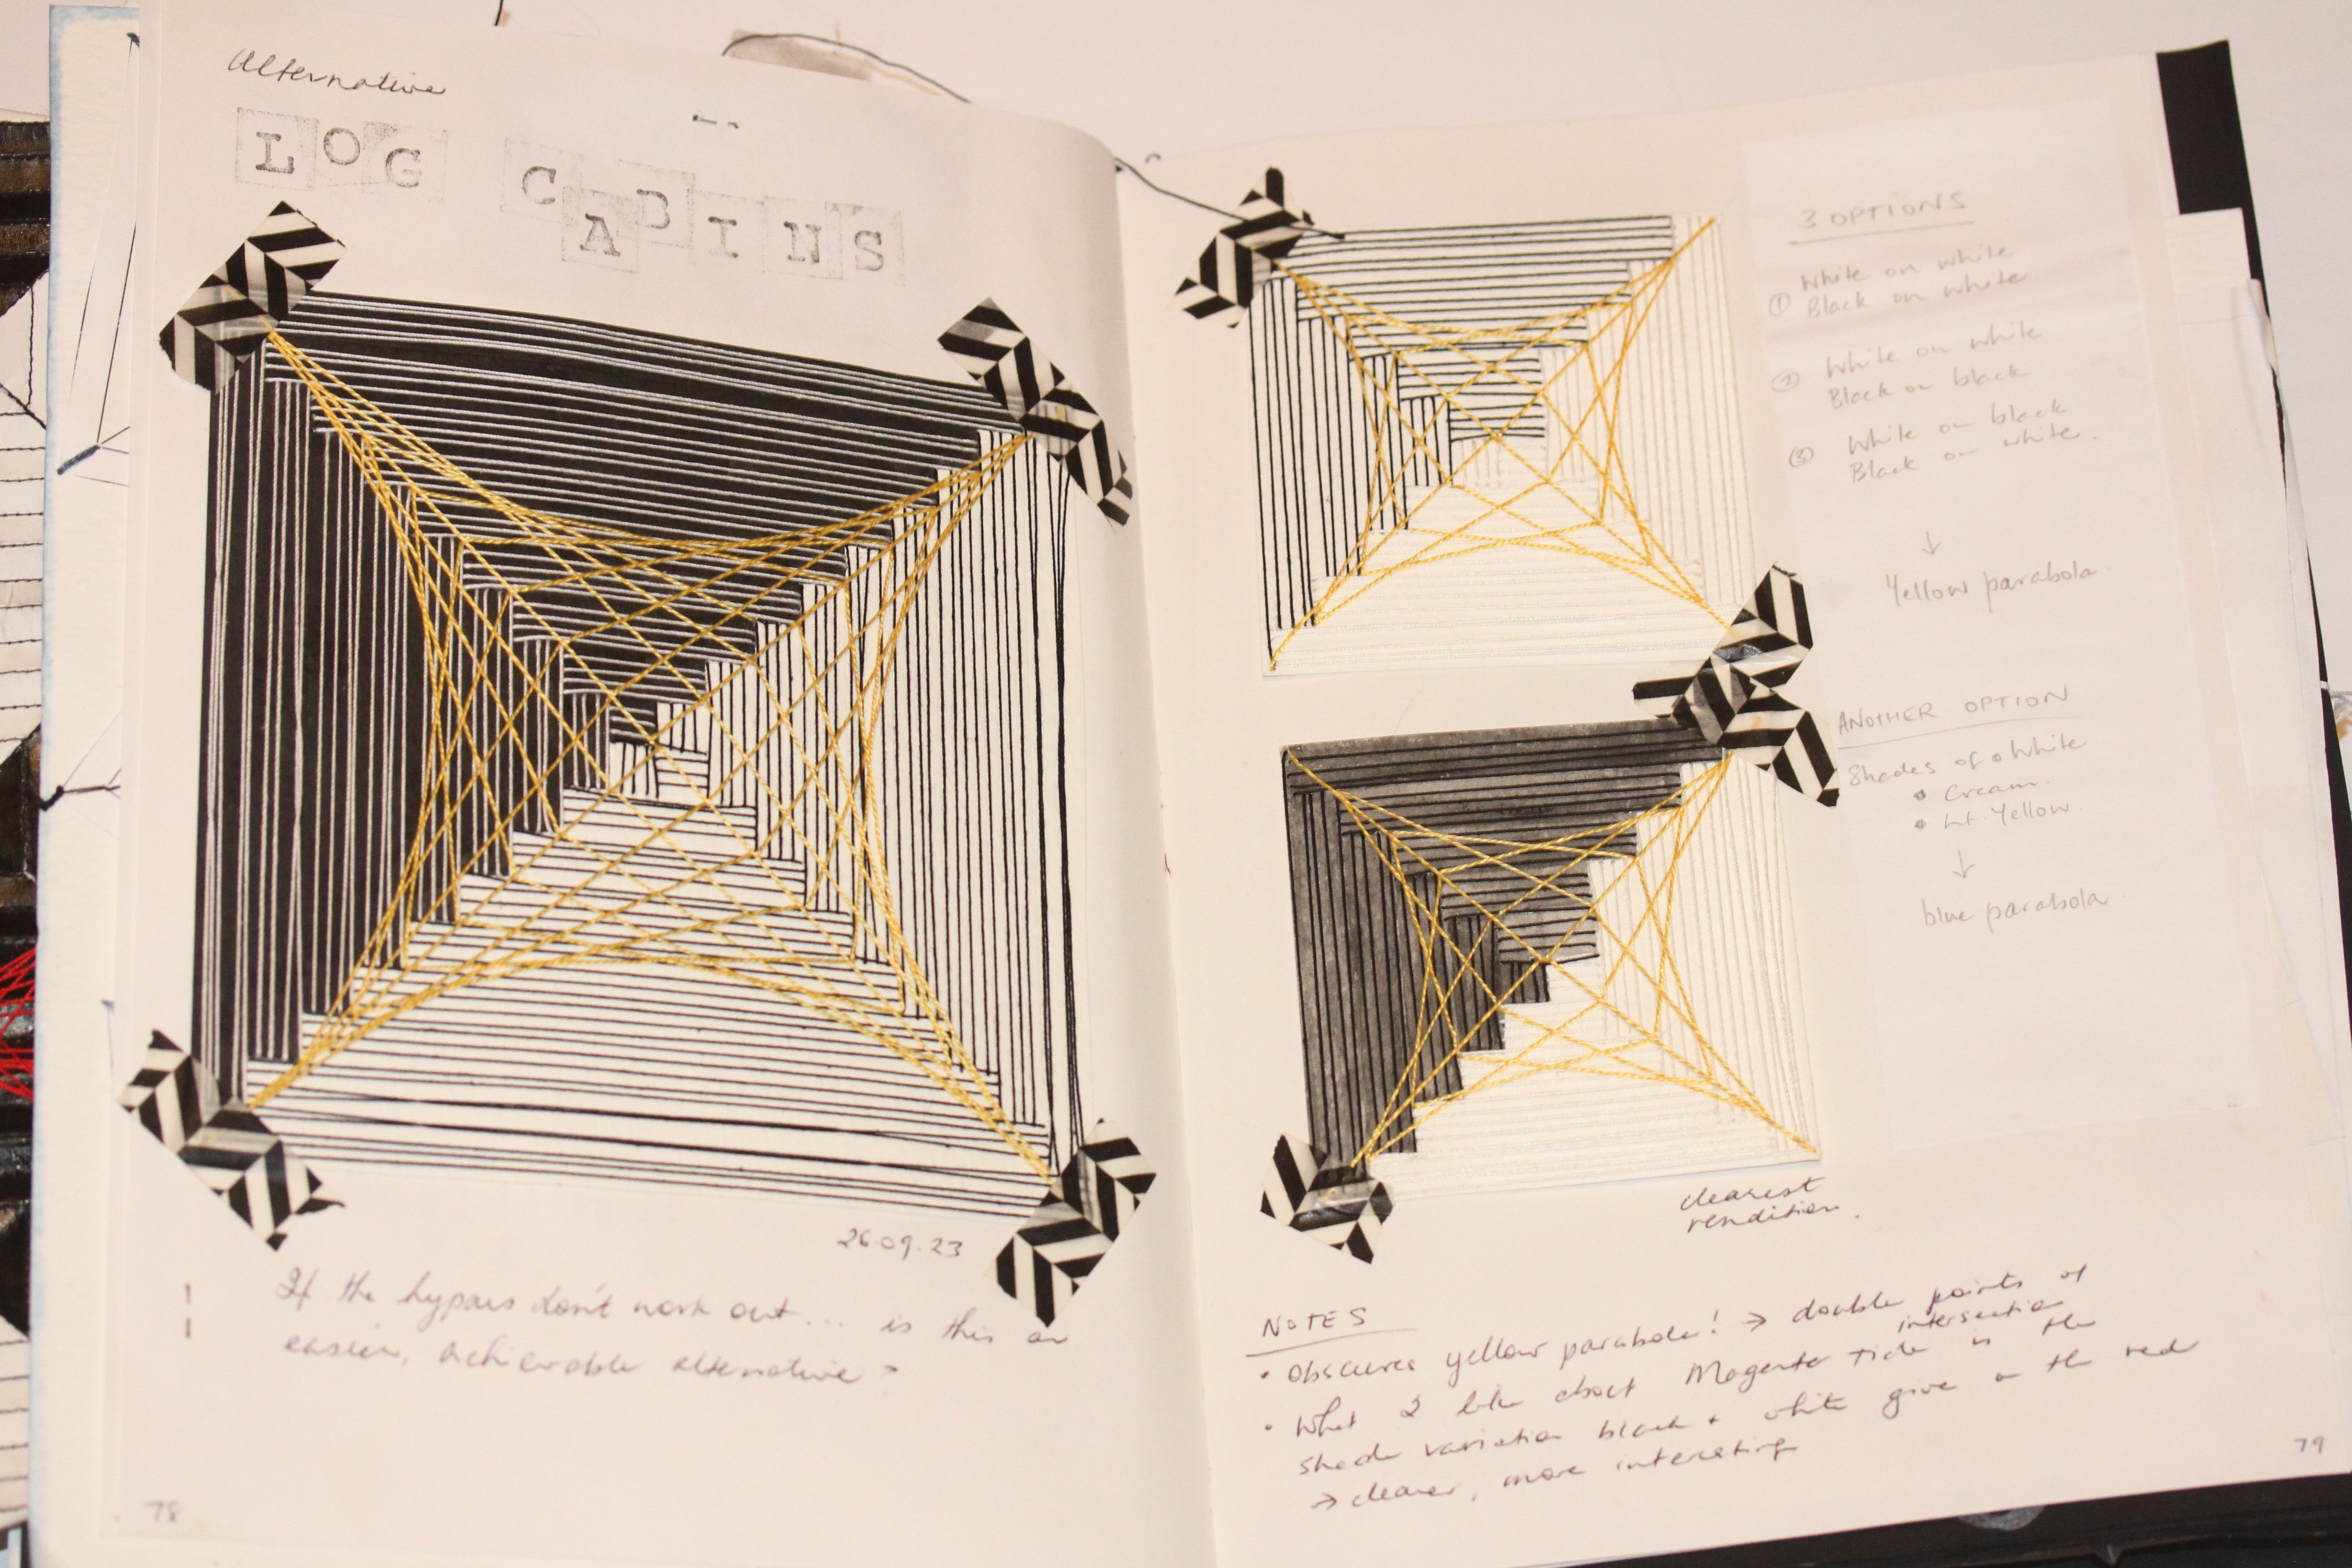 Alternative
LOG CABINS
26.09.23
If the hypars don't work out... is this an
easier, achievable alternative?
78
3 OPTIONS
① White on white
Black on white
② White on white
Black on black
③ White on black
Black on white.
↓
Yellow parabola
ANOTHER OPTION
Shades of white
• Cream
• Lt. Yellow
↓
blue parabola
clearest
rendition.
NOTES
• Obscures yellow parabola! → double points of
intersection
• What I like about Magenta Tide is the
shade variation black + white give on the red
→ clearer, more interesting
79